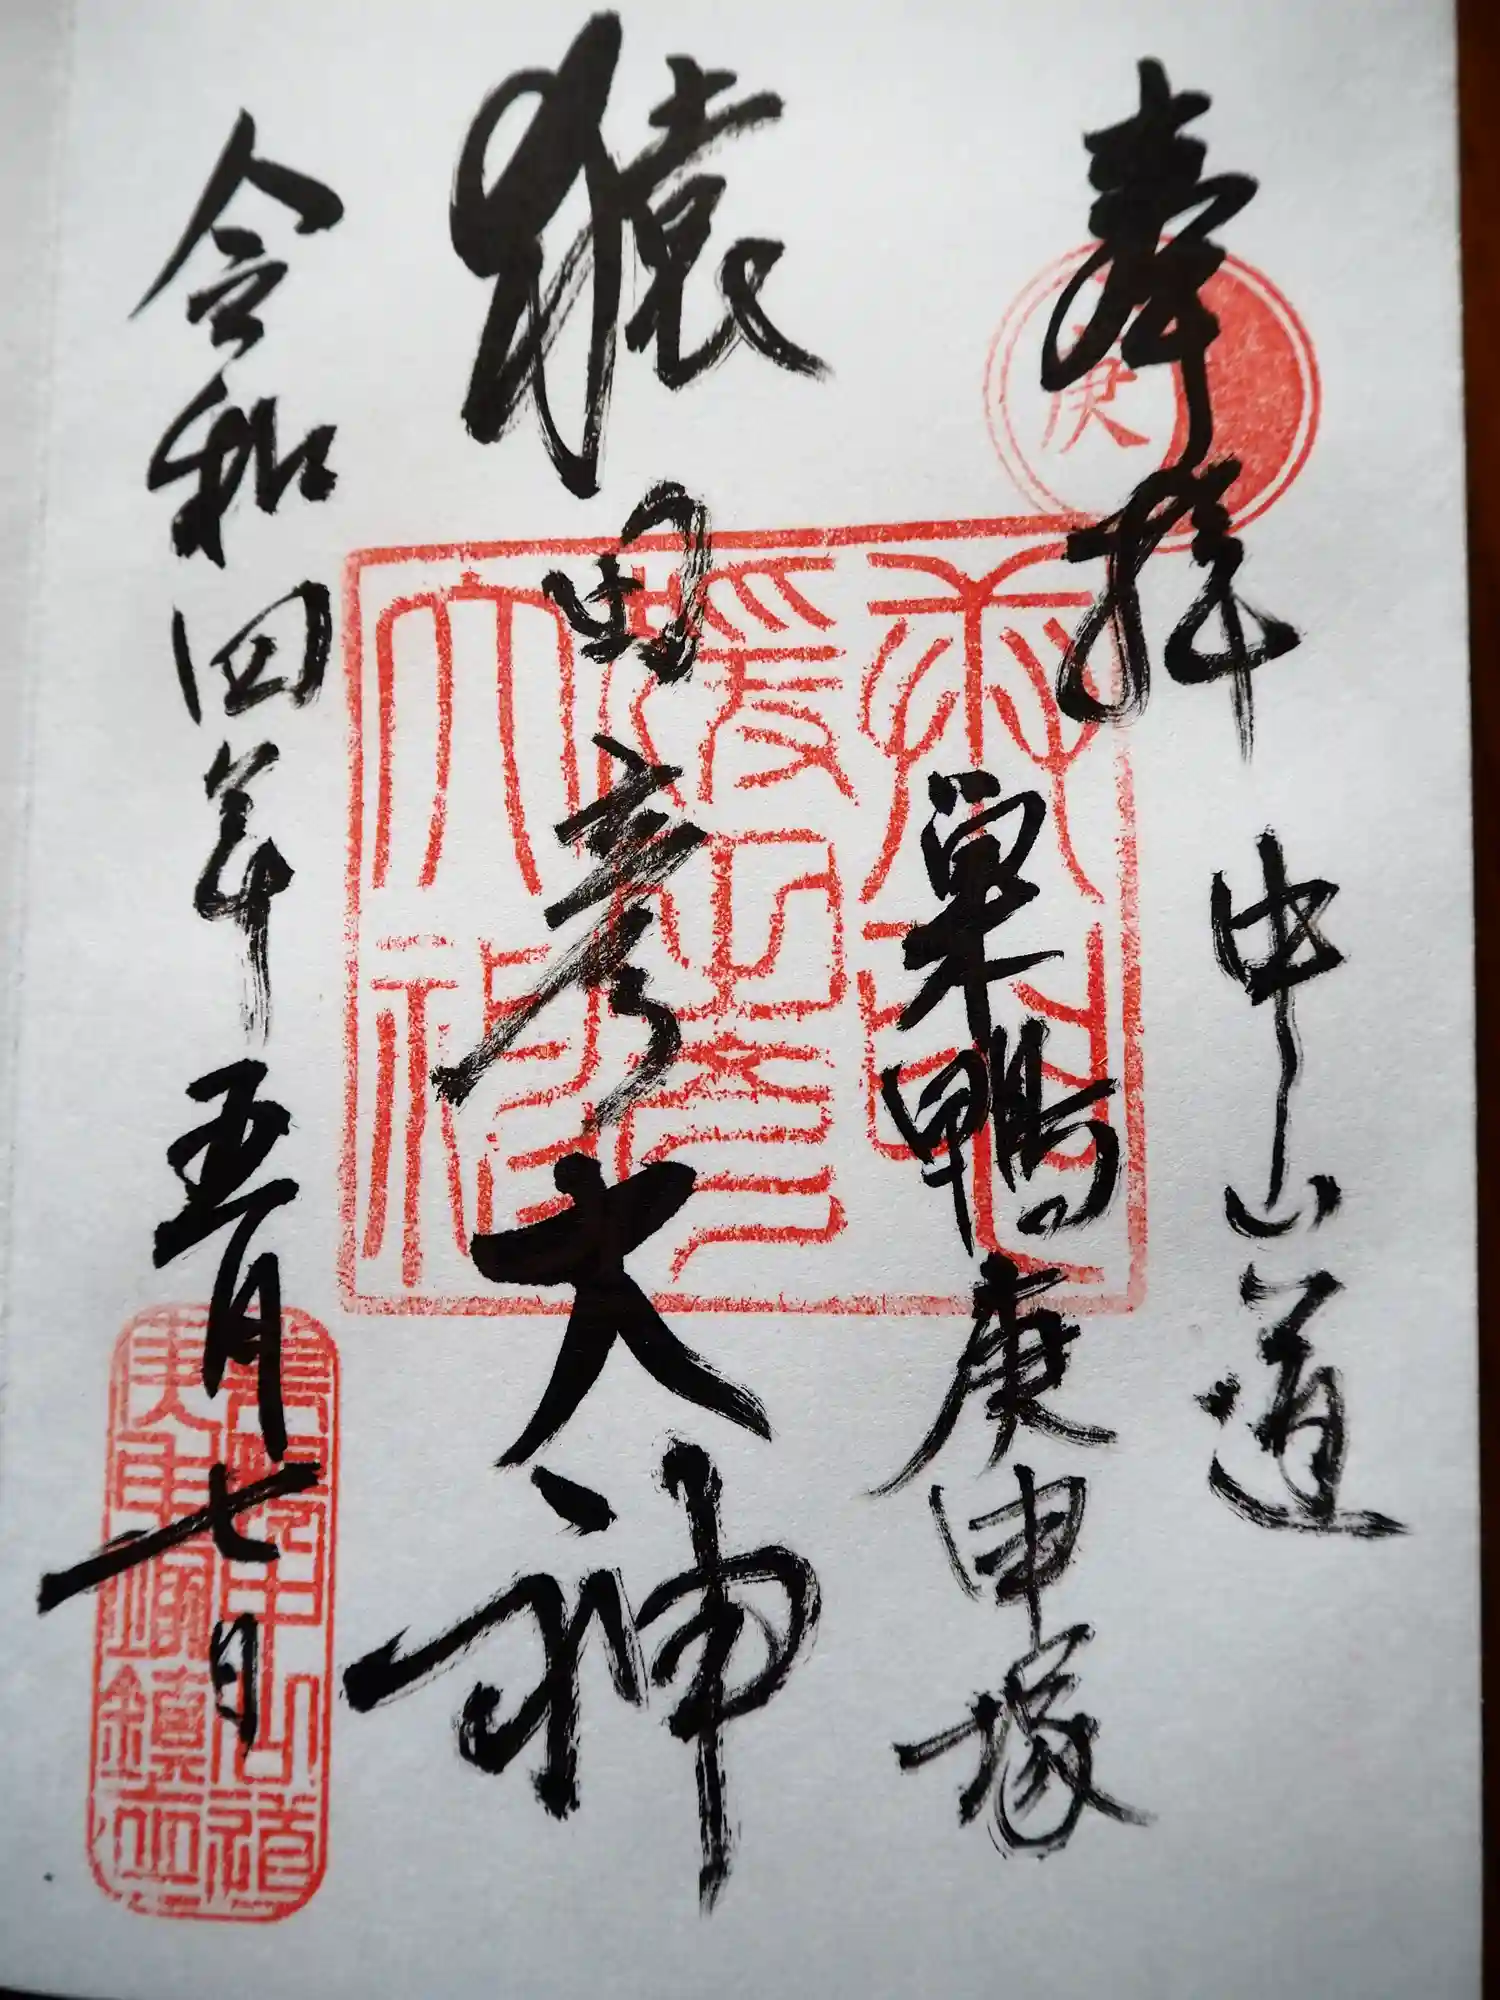 奉拝
中山道
巣鴨庚申塚
猿田彦大神
令和四年五月七日
庚